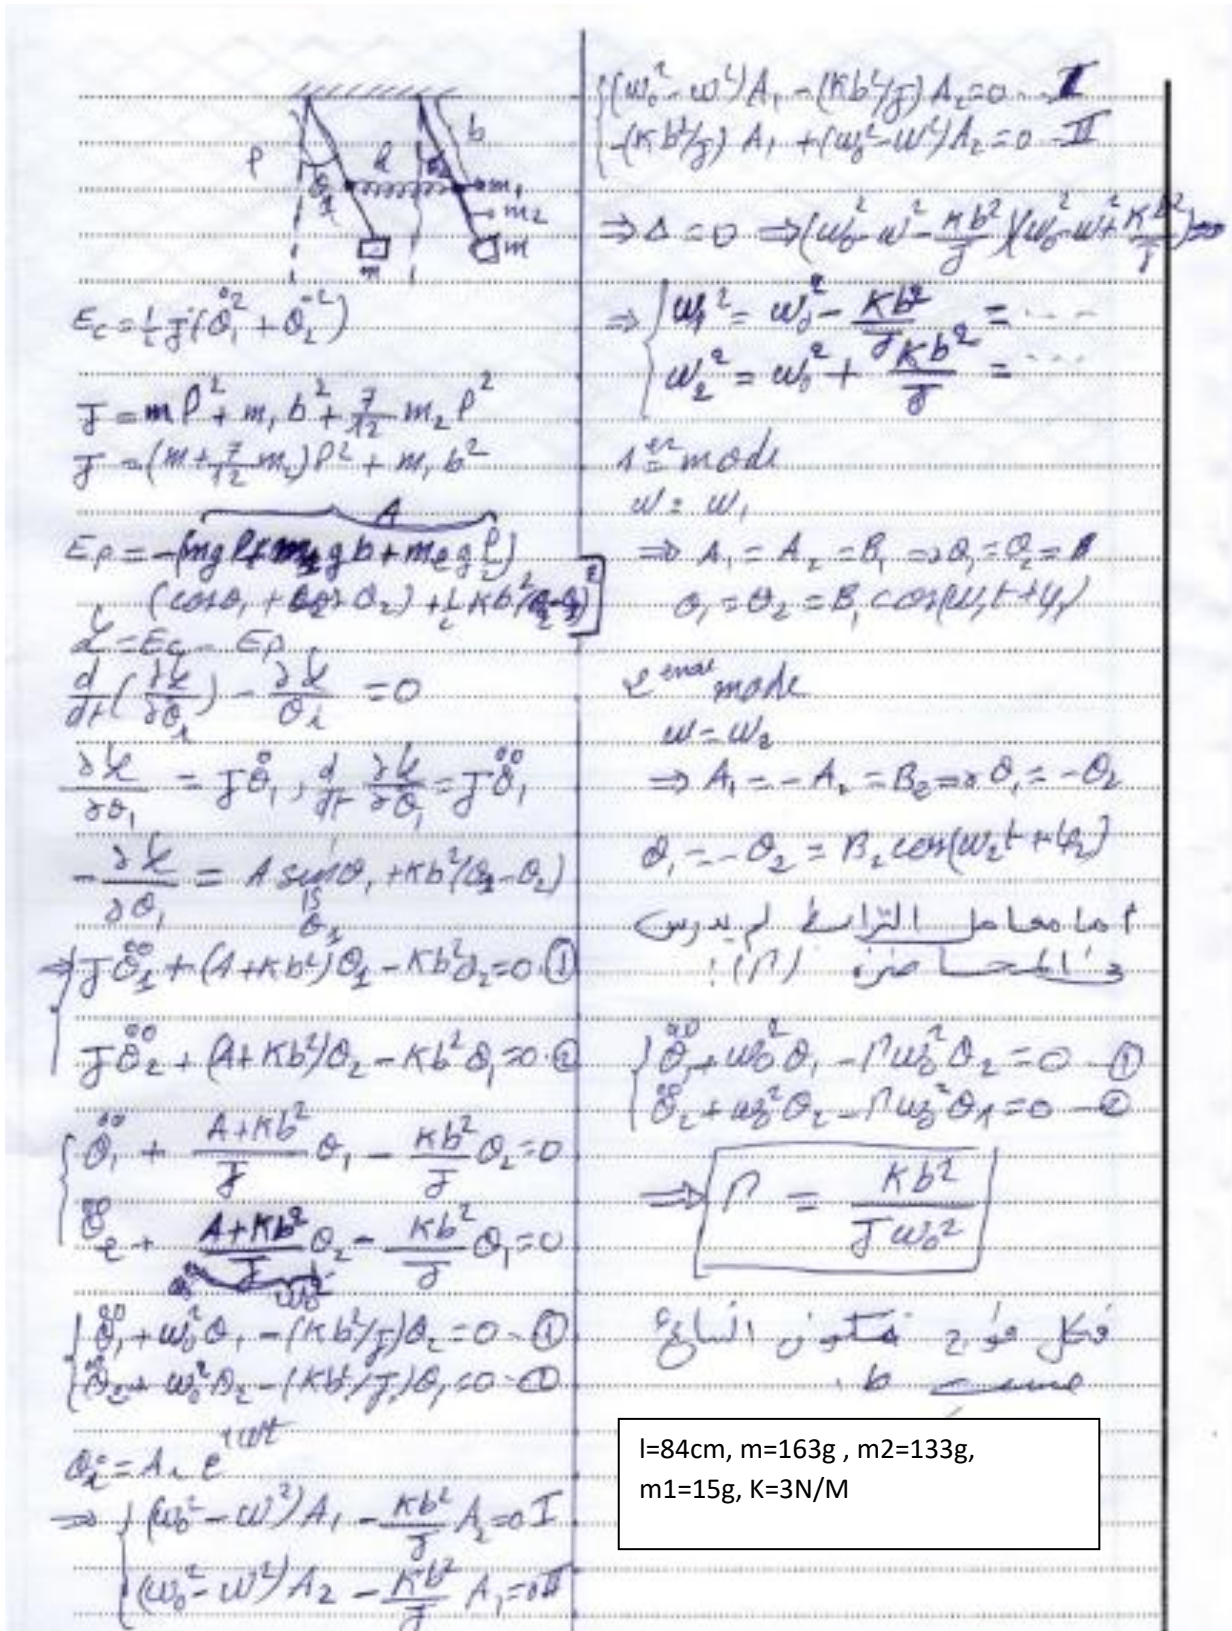 l
d
b
θ₁
θ₂
m₁
m₂
m
m
E_c = ½ J(θ̇₁² + θ̇₂²)
J = ml² + m₁b² + 7/12 m₂l²
J = (m + 7/12 m₂)l² + m₁b²
A
E_p = -[mgl + m₁gb + m₂g l/2]
(cosθ₁ + cosθ₂) + ½ Kb²(θ₂-θ₁)²
ℒ = E_c - E_p
d/dt(∂ℒ/∂θ̇₁) - ∂ℒ/θ_i = 0
∂ℒ/∂θ₁ = Jθ̇₁, d/dt ∂ℒ/∂θ₁ = Jθ̈₁
-∂ℒ/∂θ₁ = A sinθ₁ + Kb²(θ₁-θ₂)
θ₁
⇒ Jθ̈₁ + (A+Kb²)θ₁ - Kb²θ₂ = 0 ①
Jθ̈₂ + (A+Kb²)θ₂ - Kb²θ₁ = 0 ②
θ̈₁ + (A+Kb²)/J θ₁ - Kb²/J θ₂ = 0
θ̈₂ + (A+Kb²)/J θ₂ - Kb²/J θ₁ = 0
ω₀²
θ̈₁ + ω₀²θ₁ - (Kb²/J)θ₂ = 0 - ①
θ̈₂ + ω₀²θ₂ - (Kb²/J)θ₁ = 0 - ②
θ_i = A_i e^{iωt}
⇒ (ω₀² - ω²)A₁ - Kb²/J A₂ = 0 I
(ω₀² - ω²)A₂ - Kb²/J A₁ = 0 II
(ω₀² - ω²)A₁ - (Kb²/J)A₂ = 0 -- I
-(Kb²/J)A₁ + (ω₀² - ω²)A₂ = 0 - II
⇒ Δ = 0 ⇒ (ω₀² - ω² - Kb²/J)(ω₀² - ω² + Kb²/J) = 0
⇒ ω₁² = ω₀² - Kb²/J = ...
ω₂² = ω₀² + Kb²/J = ...
1er mode
ω = ω₁
⇒ A₁ = A₂ = B₁ ⇒ θ₁ = θ₂ =
θ₁ = θ₂ = B₁ cos(ω₁t + φ₁)
2eme mode
ω = ω₂
⇒ A₁ = -A₂ = B₂ ⇒ θ₁ = -θ₂
θ₁ = -θ₂ = B₂ cos(ω₂t + φ₂)
أما معامل الترابط لم يدرس
في المحاضرة (Γ)!
θ̈₁ + ω₀²θ₁ - Γω₀²θ₂ = 0 - ①
θ̈₂ + ω₀²θ₂ - Γω₀²θ₁ = 0 - ②
⇒ Γ = Kb²/Jω₀²
فكل فوج تكون النتائج
حسب b.
l=84cm, m=163g , m2=133g,
m1=15g, K=3N/M